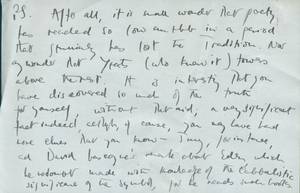 PS. After all, it is small wonder that poetry
has reached so low an ebb in a period
that generally has lost the Tradition. Nor
any wonder that Yeats (who knew it) towers
above the rest. It is interesting that you
have discovered so much of the truth
for yourself without that aid, a very significant
fact indeed, of course, you may have had
more clues than you know – I may, for instance,
David remark about Eden, which
he made with knowledge of the Cabbalistic
significance of the symbol, for he reads such books